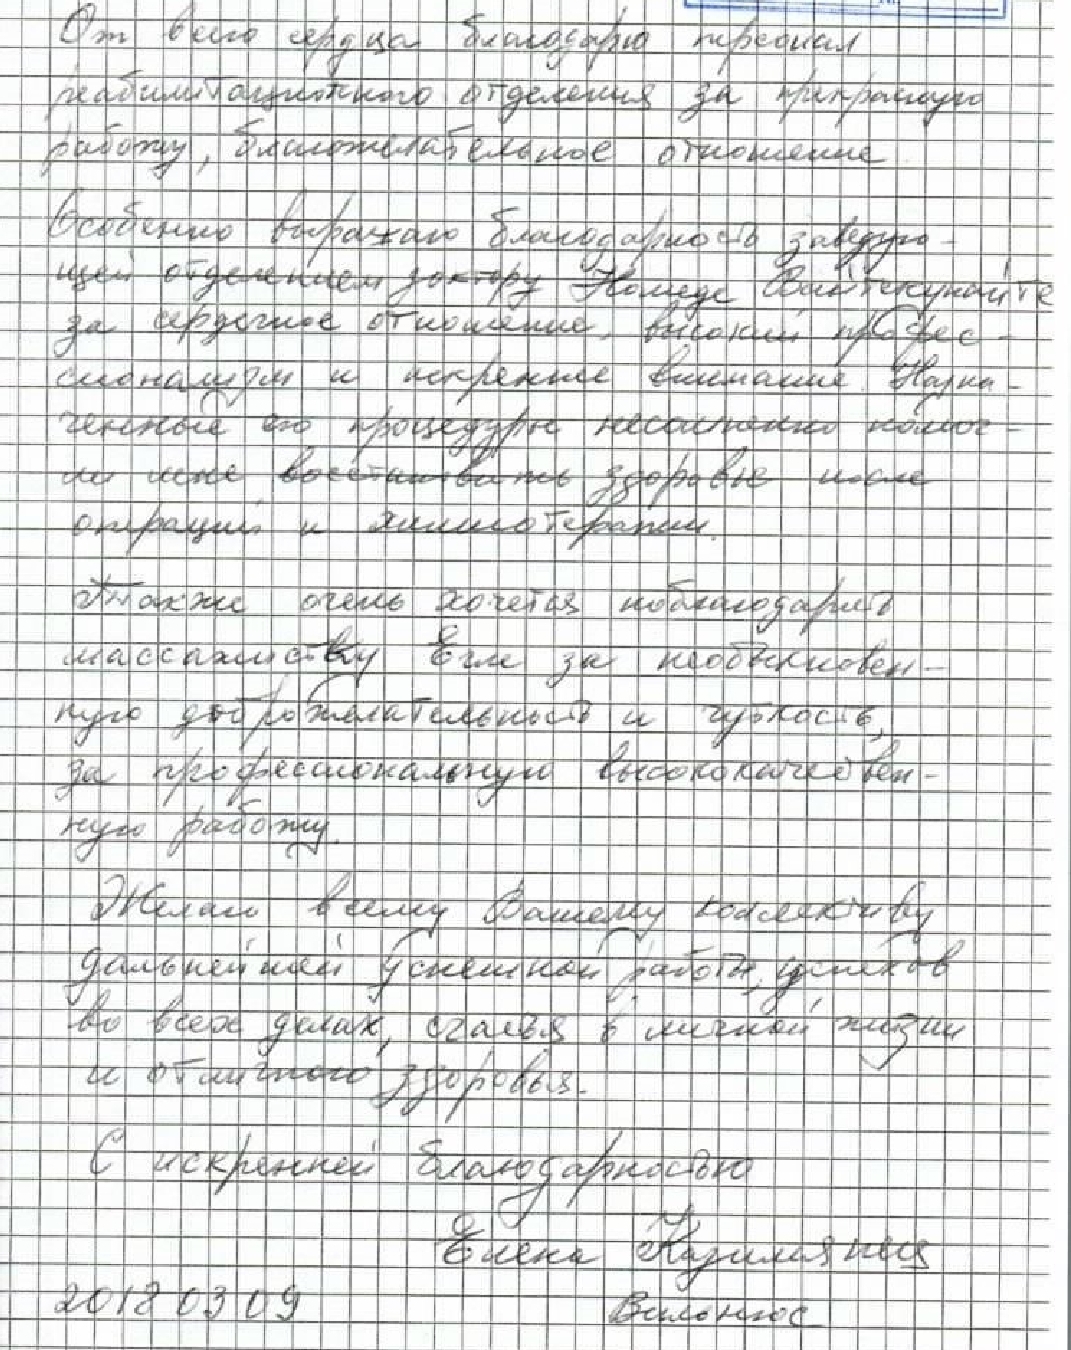 От всего сердца благодарю персонал
реабилитационного отделения за прекрасную
работу, благожелательное отношение.
Особенно выражаю благодарность заведую-
щей отделением доктору Йомеде Вайтекунайте
за сердечное отношение, высокий профес-
сионализм и искреннее внимание. Назна-
ченные ею процедуры несомненно помог-
ли мне восстановить здоровье после
операции и химиотерапии.
Также очень хочется поблагодарить
массажистку Егле за необыкновен-
ную доброжелательность и чуткость,
за профессиональную высококачествен-
ную работу.
Желаю всему Вашему коллективу
дальнейшей успешной работы, успехов
во всех делах, счастья в личной жизни
и отличного здоровья.
С искренней благодарностью
Елена
2018 03 09 Вильнюс